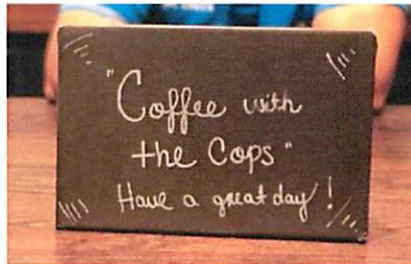 "Coffee with
the Cops"
Have a great day!